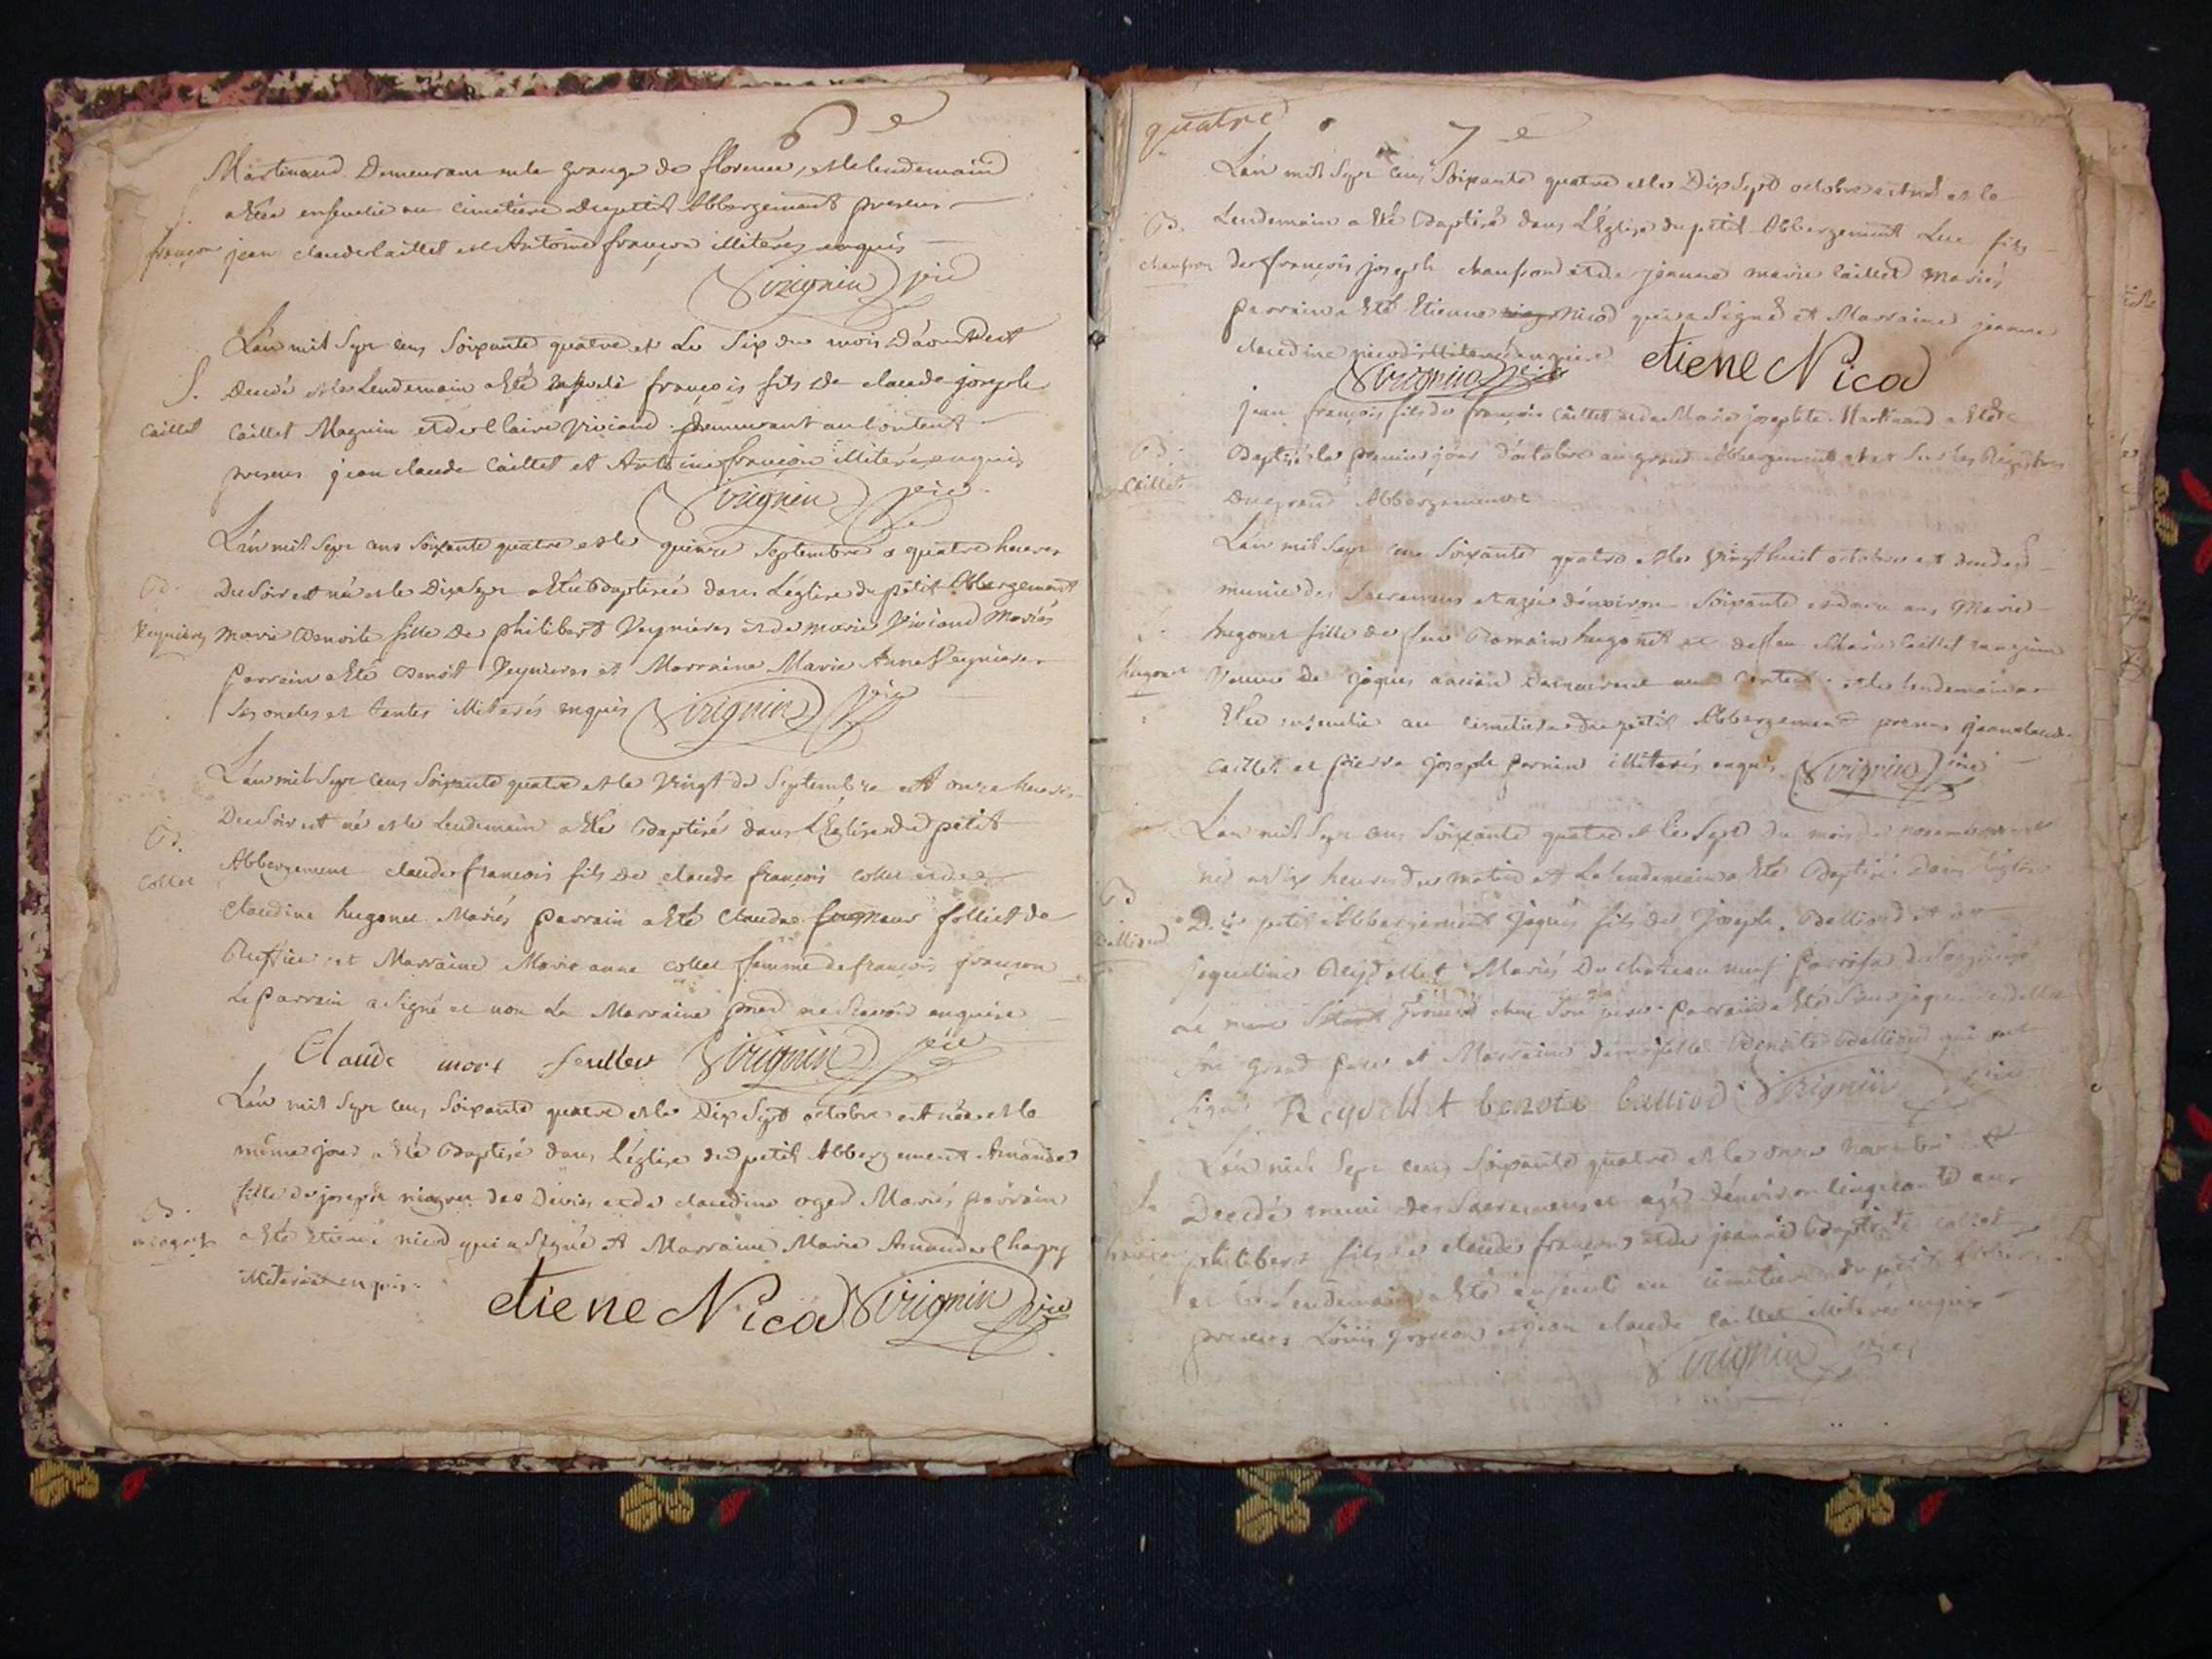 6e
Martinand Demeurant en la Grange de florence, et le lendemain
a été ensevelie au cimetiere du petit Abbergement presens
françon jean claude Caillet et Antoine françon illiterés enquis
Virignin
L'an mil Sept cens Soixante quatre et le Six du mois d'aout est
S. Decedé et le Lendemain a Eté ensevelit françois fils de claude joseph
Caillet Caillet Magnin et de Claire Viviand Demeurant au Content
presens jean claude Caillet et Antoine françon illiterés enquis
Virignin
L'an mil Sept cens Soixante quatre et le quinze Septembre a quatre heures
B. Du Soir est née et le Dix Sept a Eté Baptisée dans L'église du petit Abbergement
Veynieres Marie Benoite fille de philibert Veynieres et de marie Viviand Mariés
parrain a Eté Benoit Veynieres et Marraine Marie Anne Veynieres
Ses oncles et tantes illiterés enquis Virignin
L'an mil Sept cens Soixante quatre et le Vingt de Septembre et A onze heures
B. Du Soir est né et le Lendemain a Eté Baptisé dans L'Eglise du petit
Collet Abbergement claude francois fils de claude françois collet et de
Claudine hugonet Mariés parrain a Eté Claude folliet de
Ruffieu et Marraine Marie anne collet femme de françois françon
Le Parrain a Signé et non La Marraine pour ne Scavoir enquise
Claude mort Virignin
L'an mil Sept cens Soixante quatre et le Dix Sept octobre est née et le
même jour a Eté Baptisé dans L'église du petit Abbergement Amande
fille de joseph des et de claudine oger Mariés parrain
B. a Eté Etiene nicod qui a Signé et Marraine Marie Amande Chapuy
illiterée enquis.
etiene Nicod Virignin
quatre 7e
L'an mil Sept cens Soixante quatre et le Dix Sept octobre est né et le
B. Lendemain a Eté Baptisé dans L'Eglise du petit Abbergement Luc fils
de françois joseph et de jeanne marie Caillet mariés
parrain a Eté Etienne Nicod qui a Signé et Marraine jeanne
claudine nicod illiterée enquise etiene Nicod
Virignin
jean françois fils de françois Caillet et de Marie josephte Martinand a Eté
B. Baptisé le premier jour d'octobre au grand Abbergement et est Sur les Registres
Caillet Du grand Abbergement
L'an mil Sept cens Soixante quatre et le Vingt huit octobre est decedée
munie des Sacremens et agée d'environ Soixante et ans Marie
S. hugonet fille de feu Romain hugonet et de feu Marie Caillet magnin
hugonet Veuve de jaques ancian Demeurant au Content et le lendemain a
Eté ensevelie au cimetiere du petit Abbergement presens jean claude
Caillet et pierre joseph pernin illiterés enquis Virignin
L'an mil Sept cens Soixante quatre et le Sept du mois de novembre est
né a Six heures du matin et Le lendemain a Eté Baptisé dans l'église
B. Du petit Abbergement jaques fils de joseph Balliod et de
Balliod jaqueline Reydellet Mariés Du chateau neuf Parroisse de
La mere chez Son pere parrain a Eté Sieur jaques Reydellet
Son Grand Pere et Marraine demoiselle Benoite Balliod qui ont
Signé Reydellet benoite balliod Virignin
L'an mil Sept cens Soixante quatre et le onze novembre est
S. Decedé muni des Sacremens et agé d'environ cinquante ans
françon philibert fils de claude françon et de jeanne Baptiste collet
et le Lendemain a Eté ensevelit au cimetiere du petit
presens Louis françon et jean claude Caillet illiterés enquis
Virignin